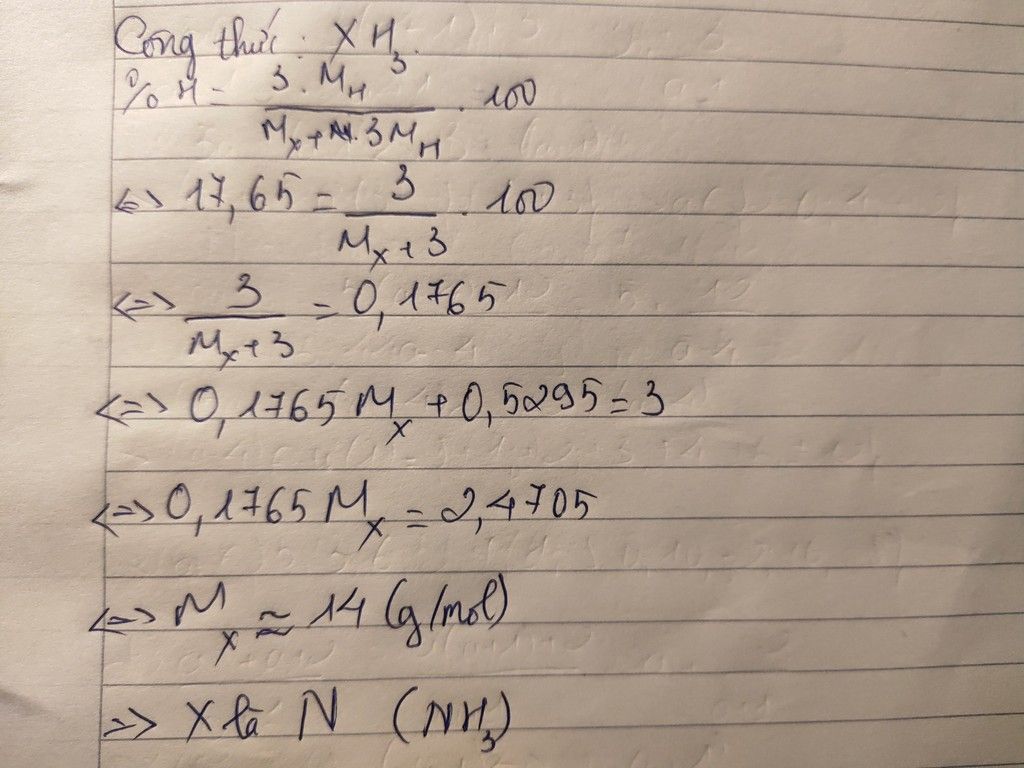 Công thức: XH₃.
%H = 3.M_H / (M_X + 3M_H) . 100
<=> 17,65 = 3 / (M_X + 3) . 100
<=> 3 / (M_X + 3) = 0,1765
<=> 0,1765 M_X + 0,5295 = 3
<=> 0,1765 M_X = 2,4705
<=> M_X ≈ 14 (g/mol)
=> X là N (NH₃)